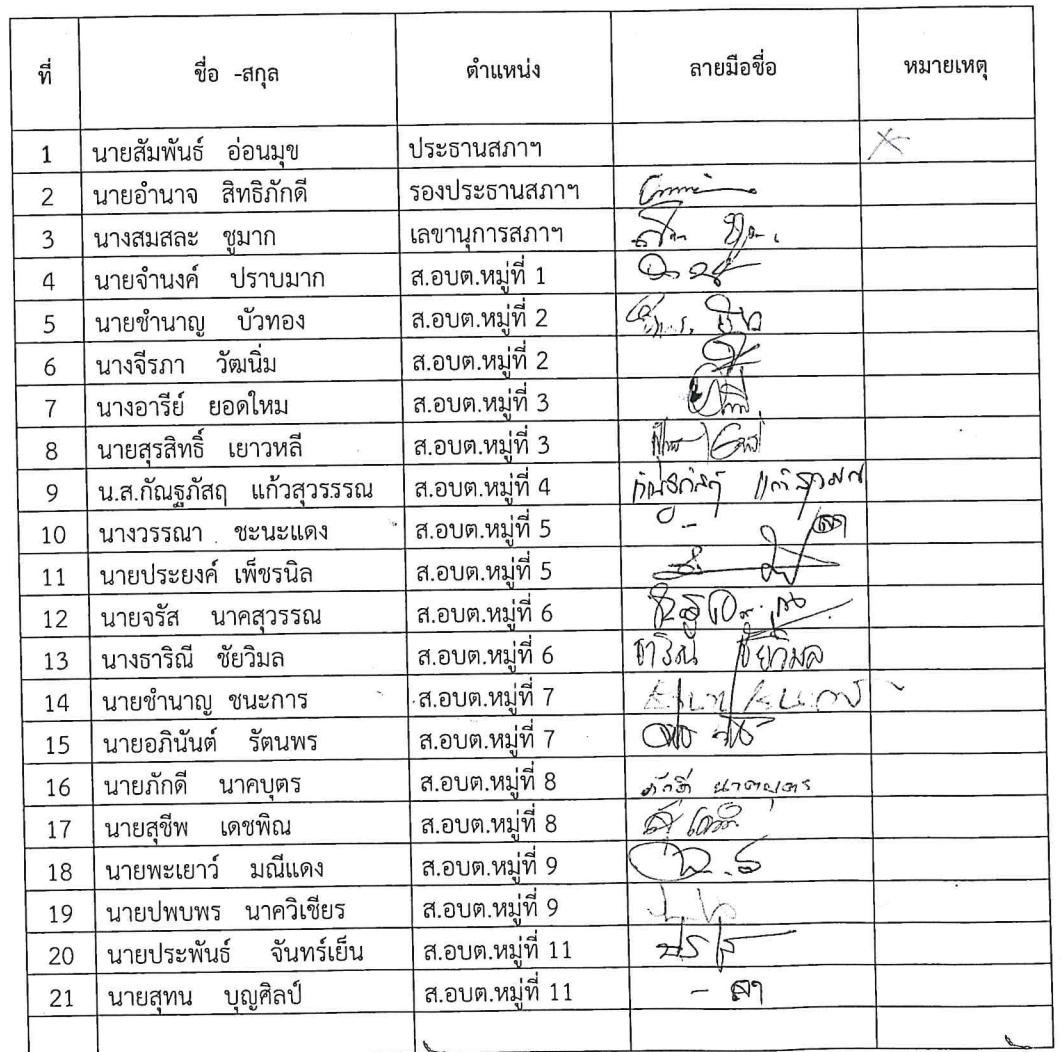 ที่ ชื่อ -สกุล ตำแหน่ง ลายมือชื่อ หมายเหตุ
1 นายสัมพันธ์ อ่อนมุข ประธานสภาฯ
2 นายอำนาจ สิทธิภักดี รองประธานสภาฯ
3 นางสมสละ ชูมาก เลขานุการสภาฯ
4 นายจำนงค์ ปราบมาก ส.อบต.หมู่ที่ 1
5 นายชำนาญ บัวทอง ส.อบต.หมู่ที่ 2
6 นางจีรภา วัฒนิ่ม ส.อบต.หมู่ที่ 2
7 นางอารีย์ ยอดใหม ส.อบต.หมู่ที่ 3
8 นายสุรสิทธิ์ เยาวหลี ส.อบต.หมู่ที่ 3
9 น.ส.กัณฐภัสฤ แก้วสุวรรรณ ส.อบต.หมู่ที่ 4
10 นางวรรณา ชะนะแดง ส.อบต.หมู่ที่ 5 - ลา
11 นายประยงค์ เพ็ชรนิล ส.อบต.หมู่ที่ 5
12 นายจรัส นาคสุวรรณ ส.อบต.หมู่ที่ 6
13 นางธาริณี ชัยวิมล ส.อบต.หมู่ที่ 6 ธาริณี ชัยวิมล
14 นายชำนาญ ชนะการ ส.อบต.หมู่ที่ 7
15 นายอภินันต์ รัตนพร ส.อบต.หมู่ที่ 7
16 นายภักดี นาคบุตร ส.อบต.หมู่ที่ 8 ภักดี นาคบุตร
17 นายสุชีพ เดชพิณ ส.อบต.หมู่ที่ 8
18 นายพะเยาว์ มณีแดง ส.อบต.หมู่ที่ 9
19 นายปพบพร นาควิเชียร ส.อบต.หมู่ที่ 9
20 นายประพันธ์ จันทร์เย็น ส.อบต.หมู่ที่ 11
21 นายสุทน บุญศิลป์ ส.อบต.หมู่ที่ 11 - ลา